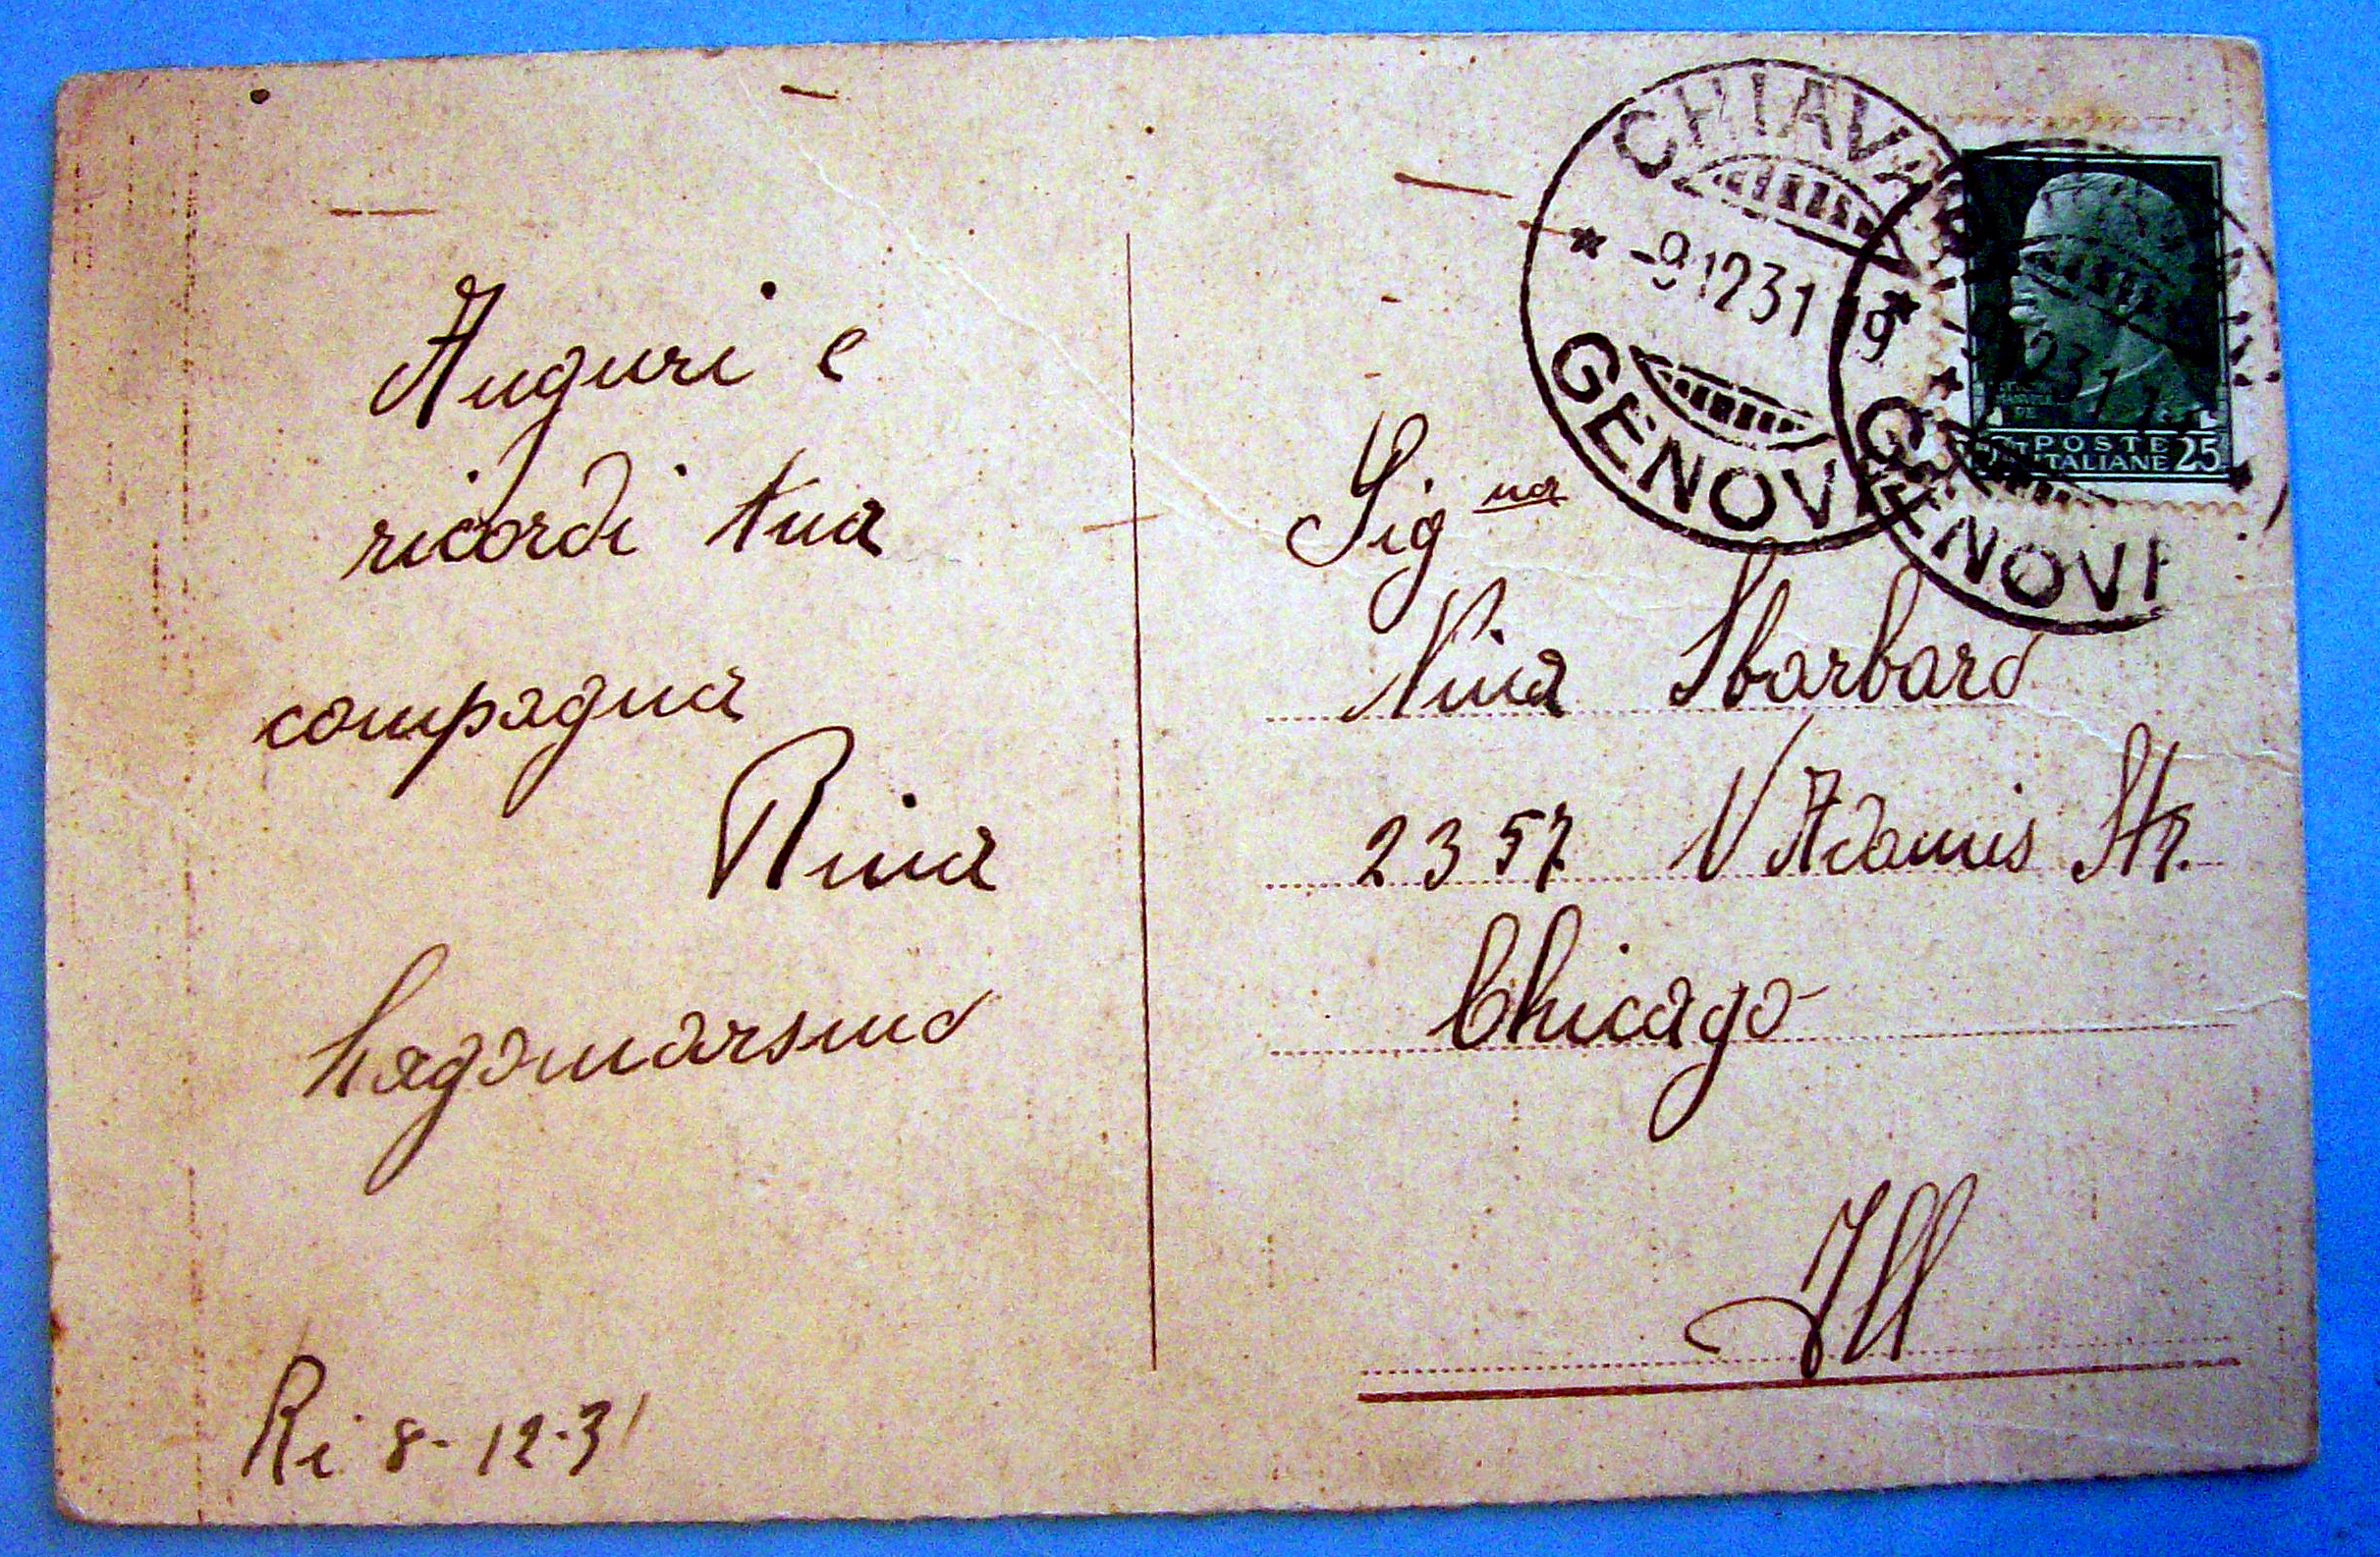 Auguri e
ricordi tua
compagna
Rina
Lagomarsino
Ri 8-12-31
CHIAVARI
-9.12.31 19
GENOVA
GENOVA
POSTE
ITALIANE 25
Sig.na
Nina Sbarbaro
2357 V Adamis Str.
Chicago
Ill